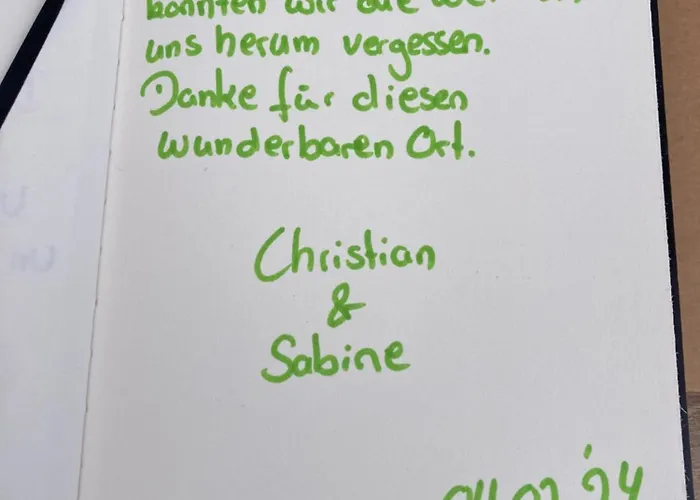 konnten wir die Welt um
uns herum vergessen.
Danke für diesen
wunderbaren Ort.
Christian
&
Sabine
'24